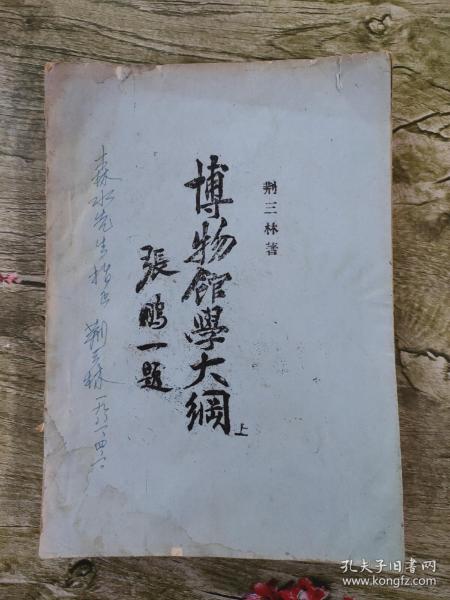 荆三林著
博物館學大綱
上
張鵬一題
森水先生指正 荆三林 一九八一、四、六
孔夫子旧书网
www.kongfz.com